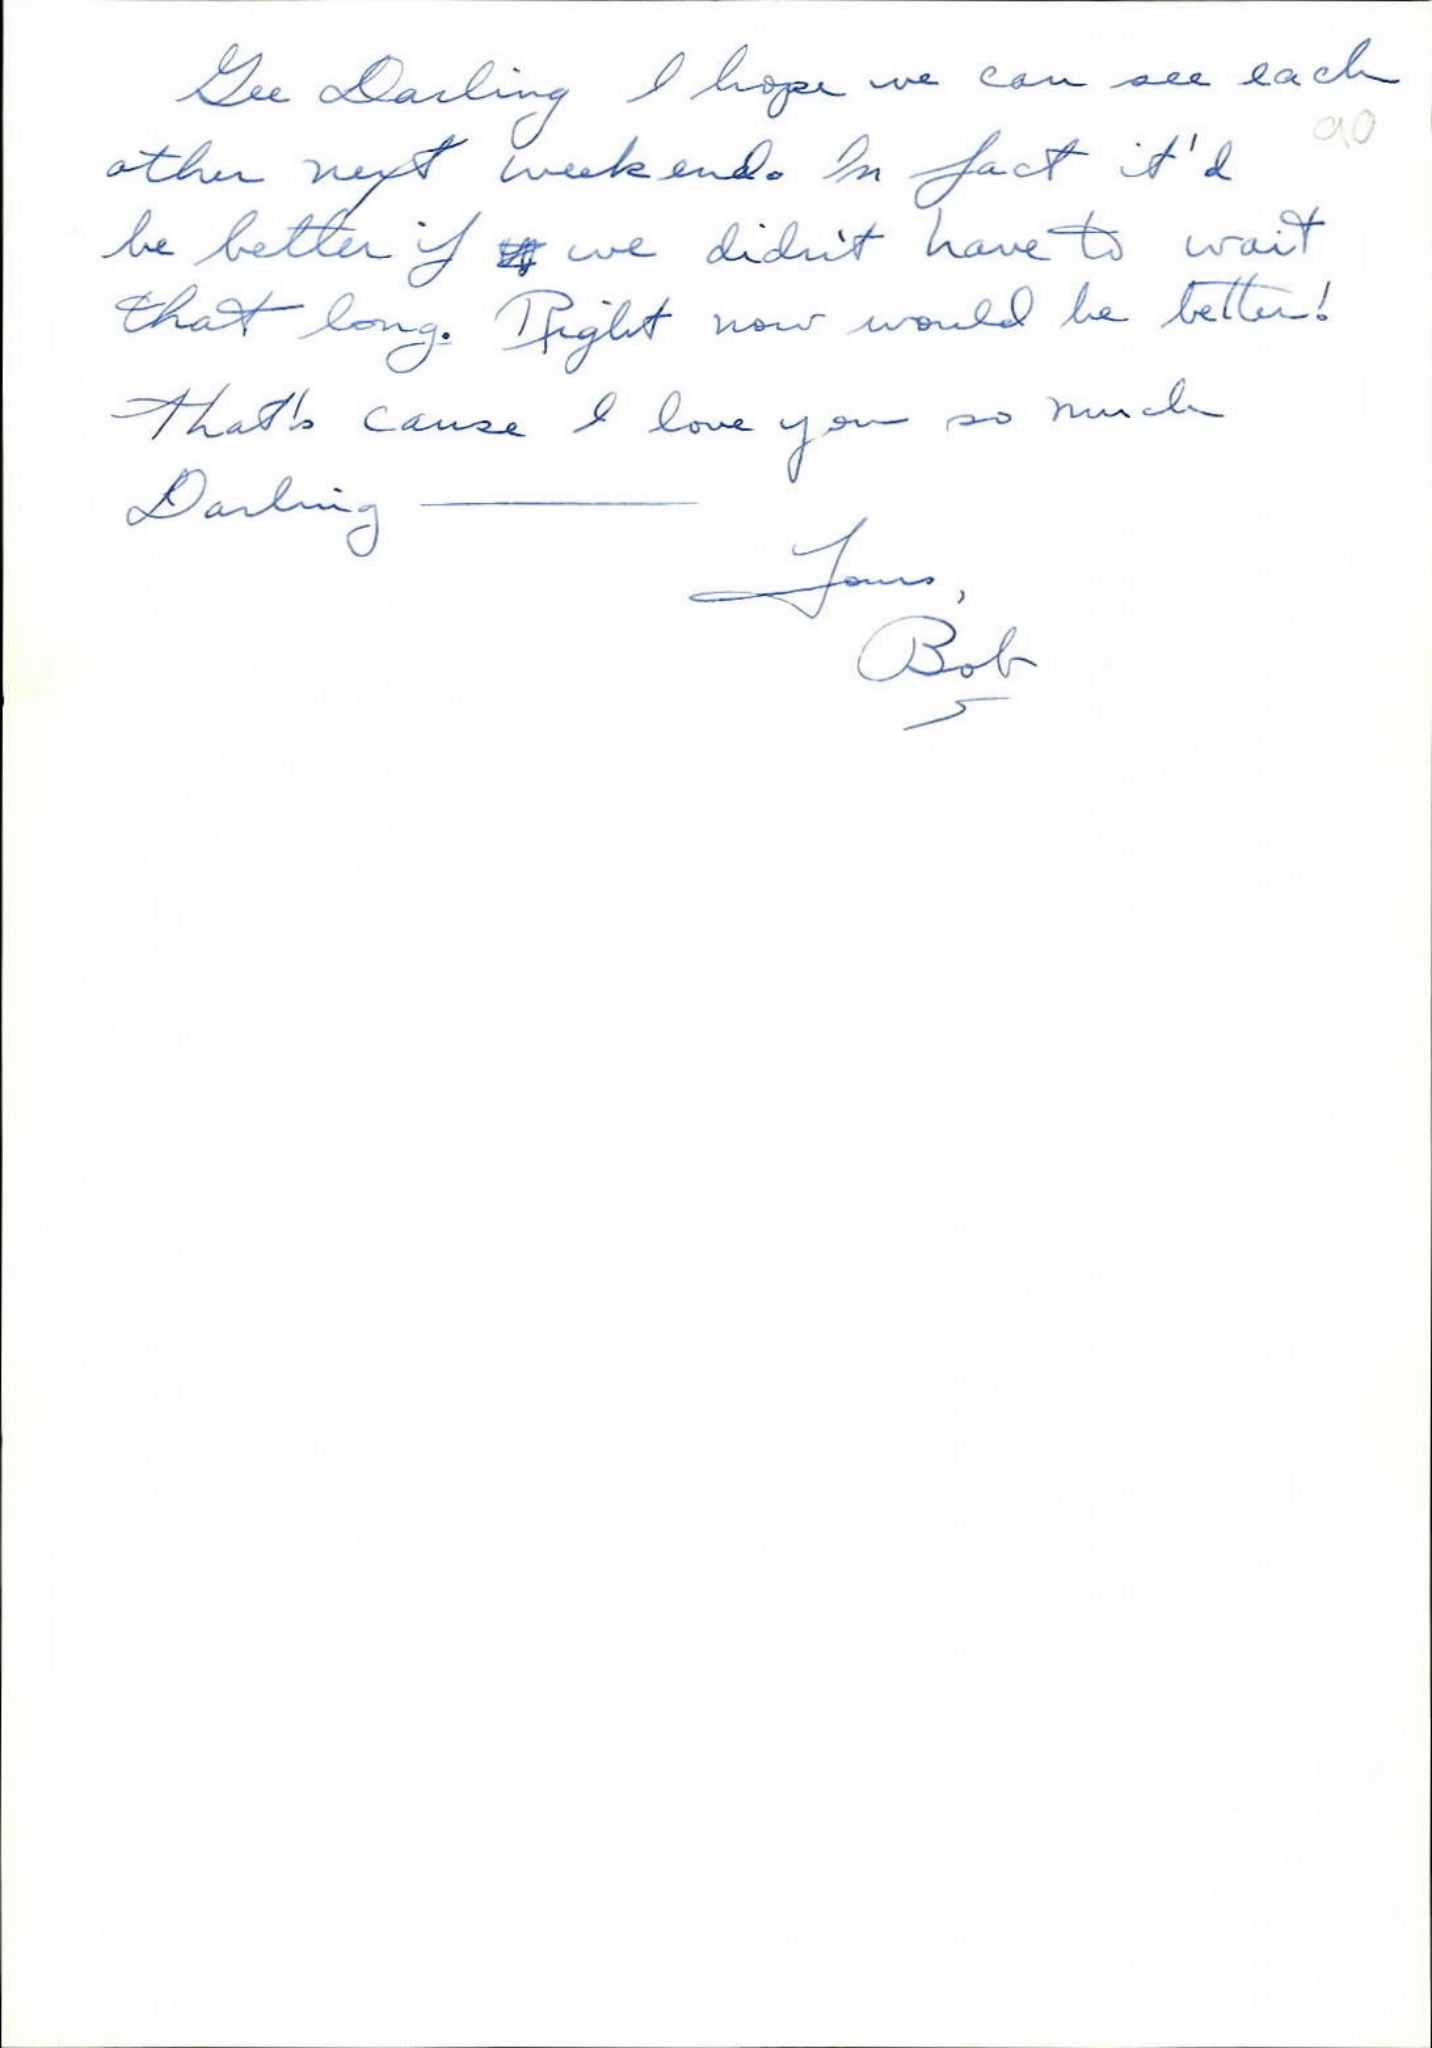 Gee Darling I hope we can see each
90
other next weekend. In fact it'd
be better if we didn't have to wait
that long. Right now would be better!
That's cause I love you so much
Darling ———
Yours,
Bob